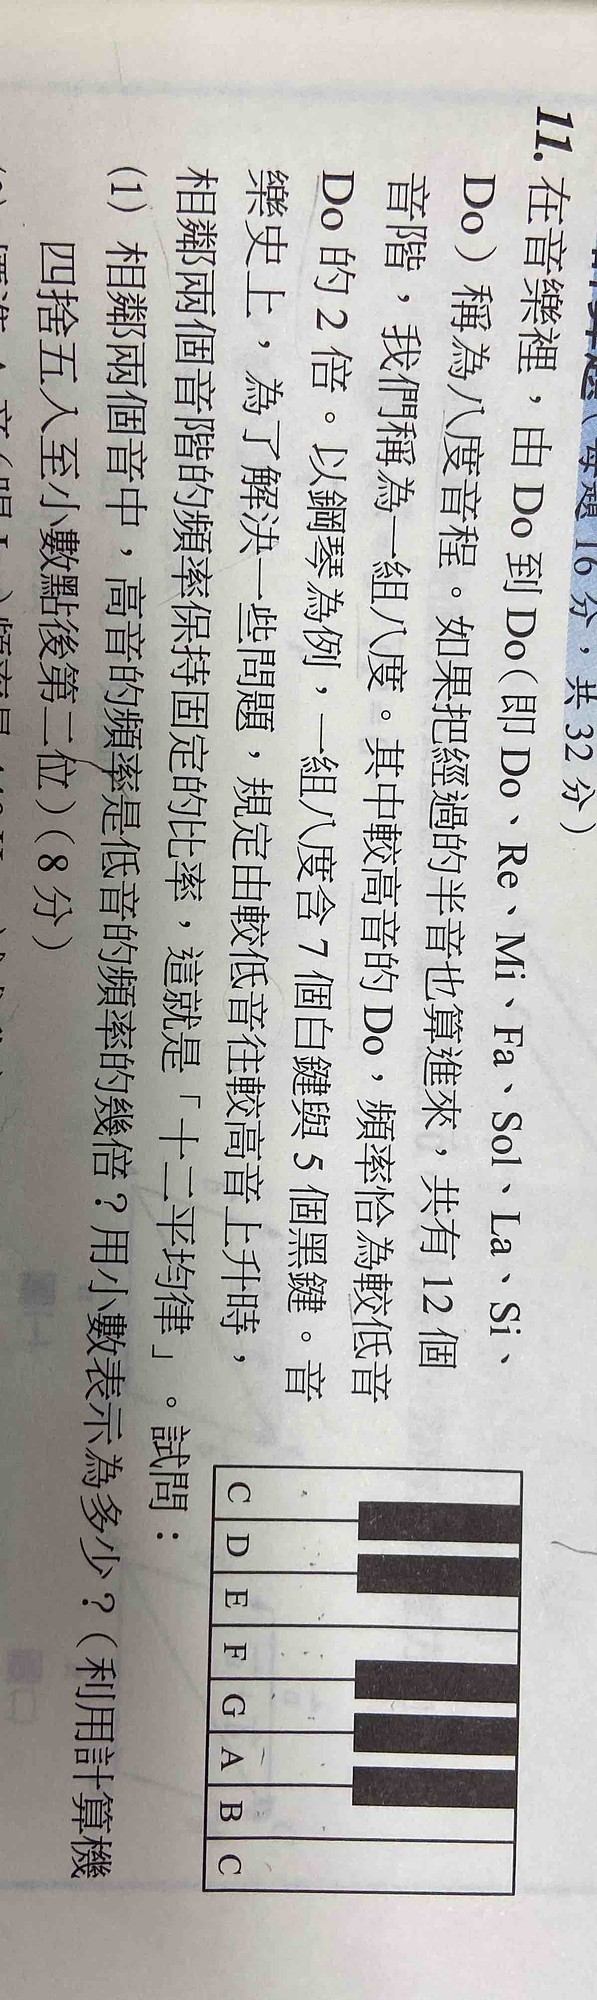 (每題 16 分，共 32 分)
11. 在音樂裡，由 Do 到 Do(即 Do、Re、Mi、Fa、Sol、La、Si、
Do）稱為八度音程。如果把經過的半音也算進來，共有 12 個
音階，我們稱為一組八度。其中較高音的 Do，頻率恰為較低音
Do 的 2 倍。以鋼琴為例，一組八度含 7 個白鍵與 5 個黑鍵。音
樂史上，為了解決一些問題，規定由較低音往較高音上升時，
相鄰兩個音階的頻率保持固定的比率，這就是「十二平均律」。試問：
C D E F G A B C
(1) 相鄰兩個音中，高音的頻率是低音的頻率的幾倍？用小數表示為多少？(利用計算機
四捨五入至小數點後第二位)(8 分)